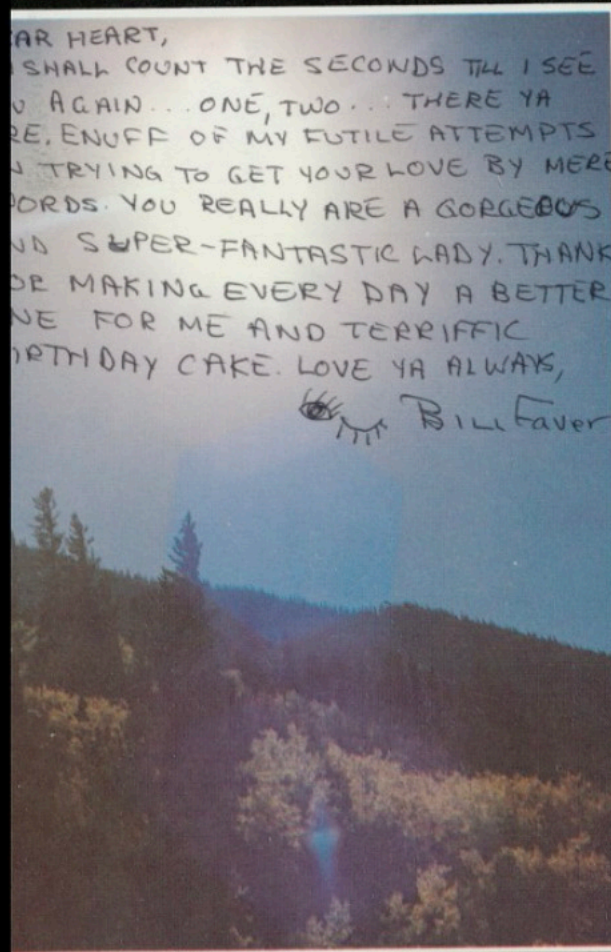 AR HEART,
SHALL COUNT THE SECONDS TILL I SEE
U AGAIN... ONE, TWO... THERE YA
RE. ENUFF OF MY FUTILE ATTEMPTS
N TRYING TO GET YOUR LOVE BY MERE
ORDS. YOU REALLY ARE A GORGEOUS
ND SUPER-FANTASTIC LADY. THANK
OR MAKING EVERY DAY A BETTER
NE FOR ME AND TERRIFFIC
IRTHDAY CAKE. LOVE YA ALWAYS,
BILL Faver